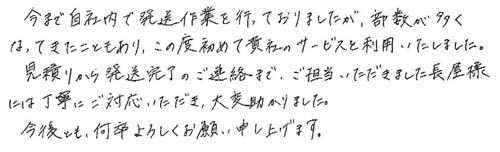 今まで自社内で発送作業を行っておりましたが、部数が多く
なってきたこともあり、この度初めて貴社のサービスを利用いたしました。
見積りから発送完了のご連絡まで、ご担当いただきました長屋様
には丁寧にご対応いただき、大変助かりました。
今後とも、何卒よろしくお願い申し上げます。